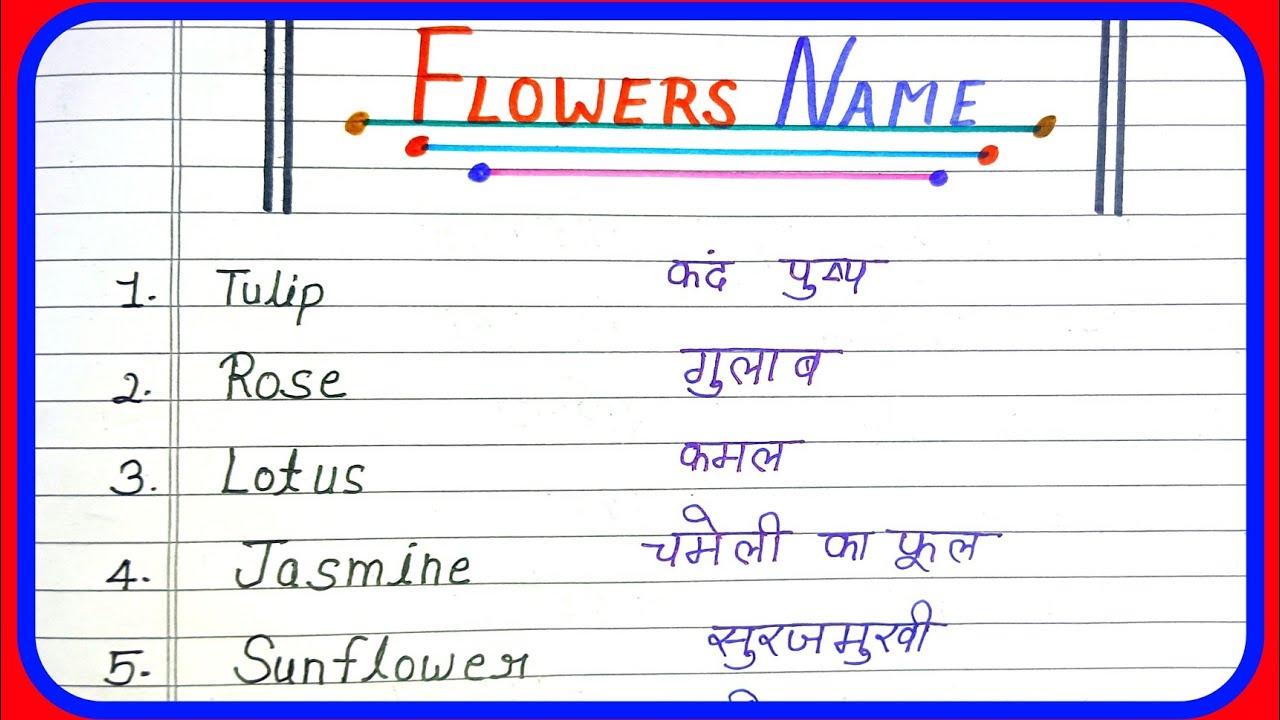 FLOWERS NAME
1. Tulip कंद पुष्प
2. Rose गुलाब
3. Lotus कमल
4. Jasmine चमेली का फूल
5. Sunflower सुरजमुखी